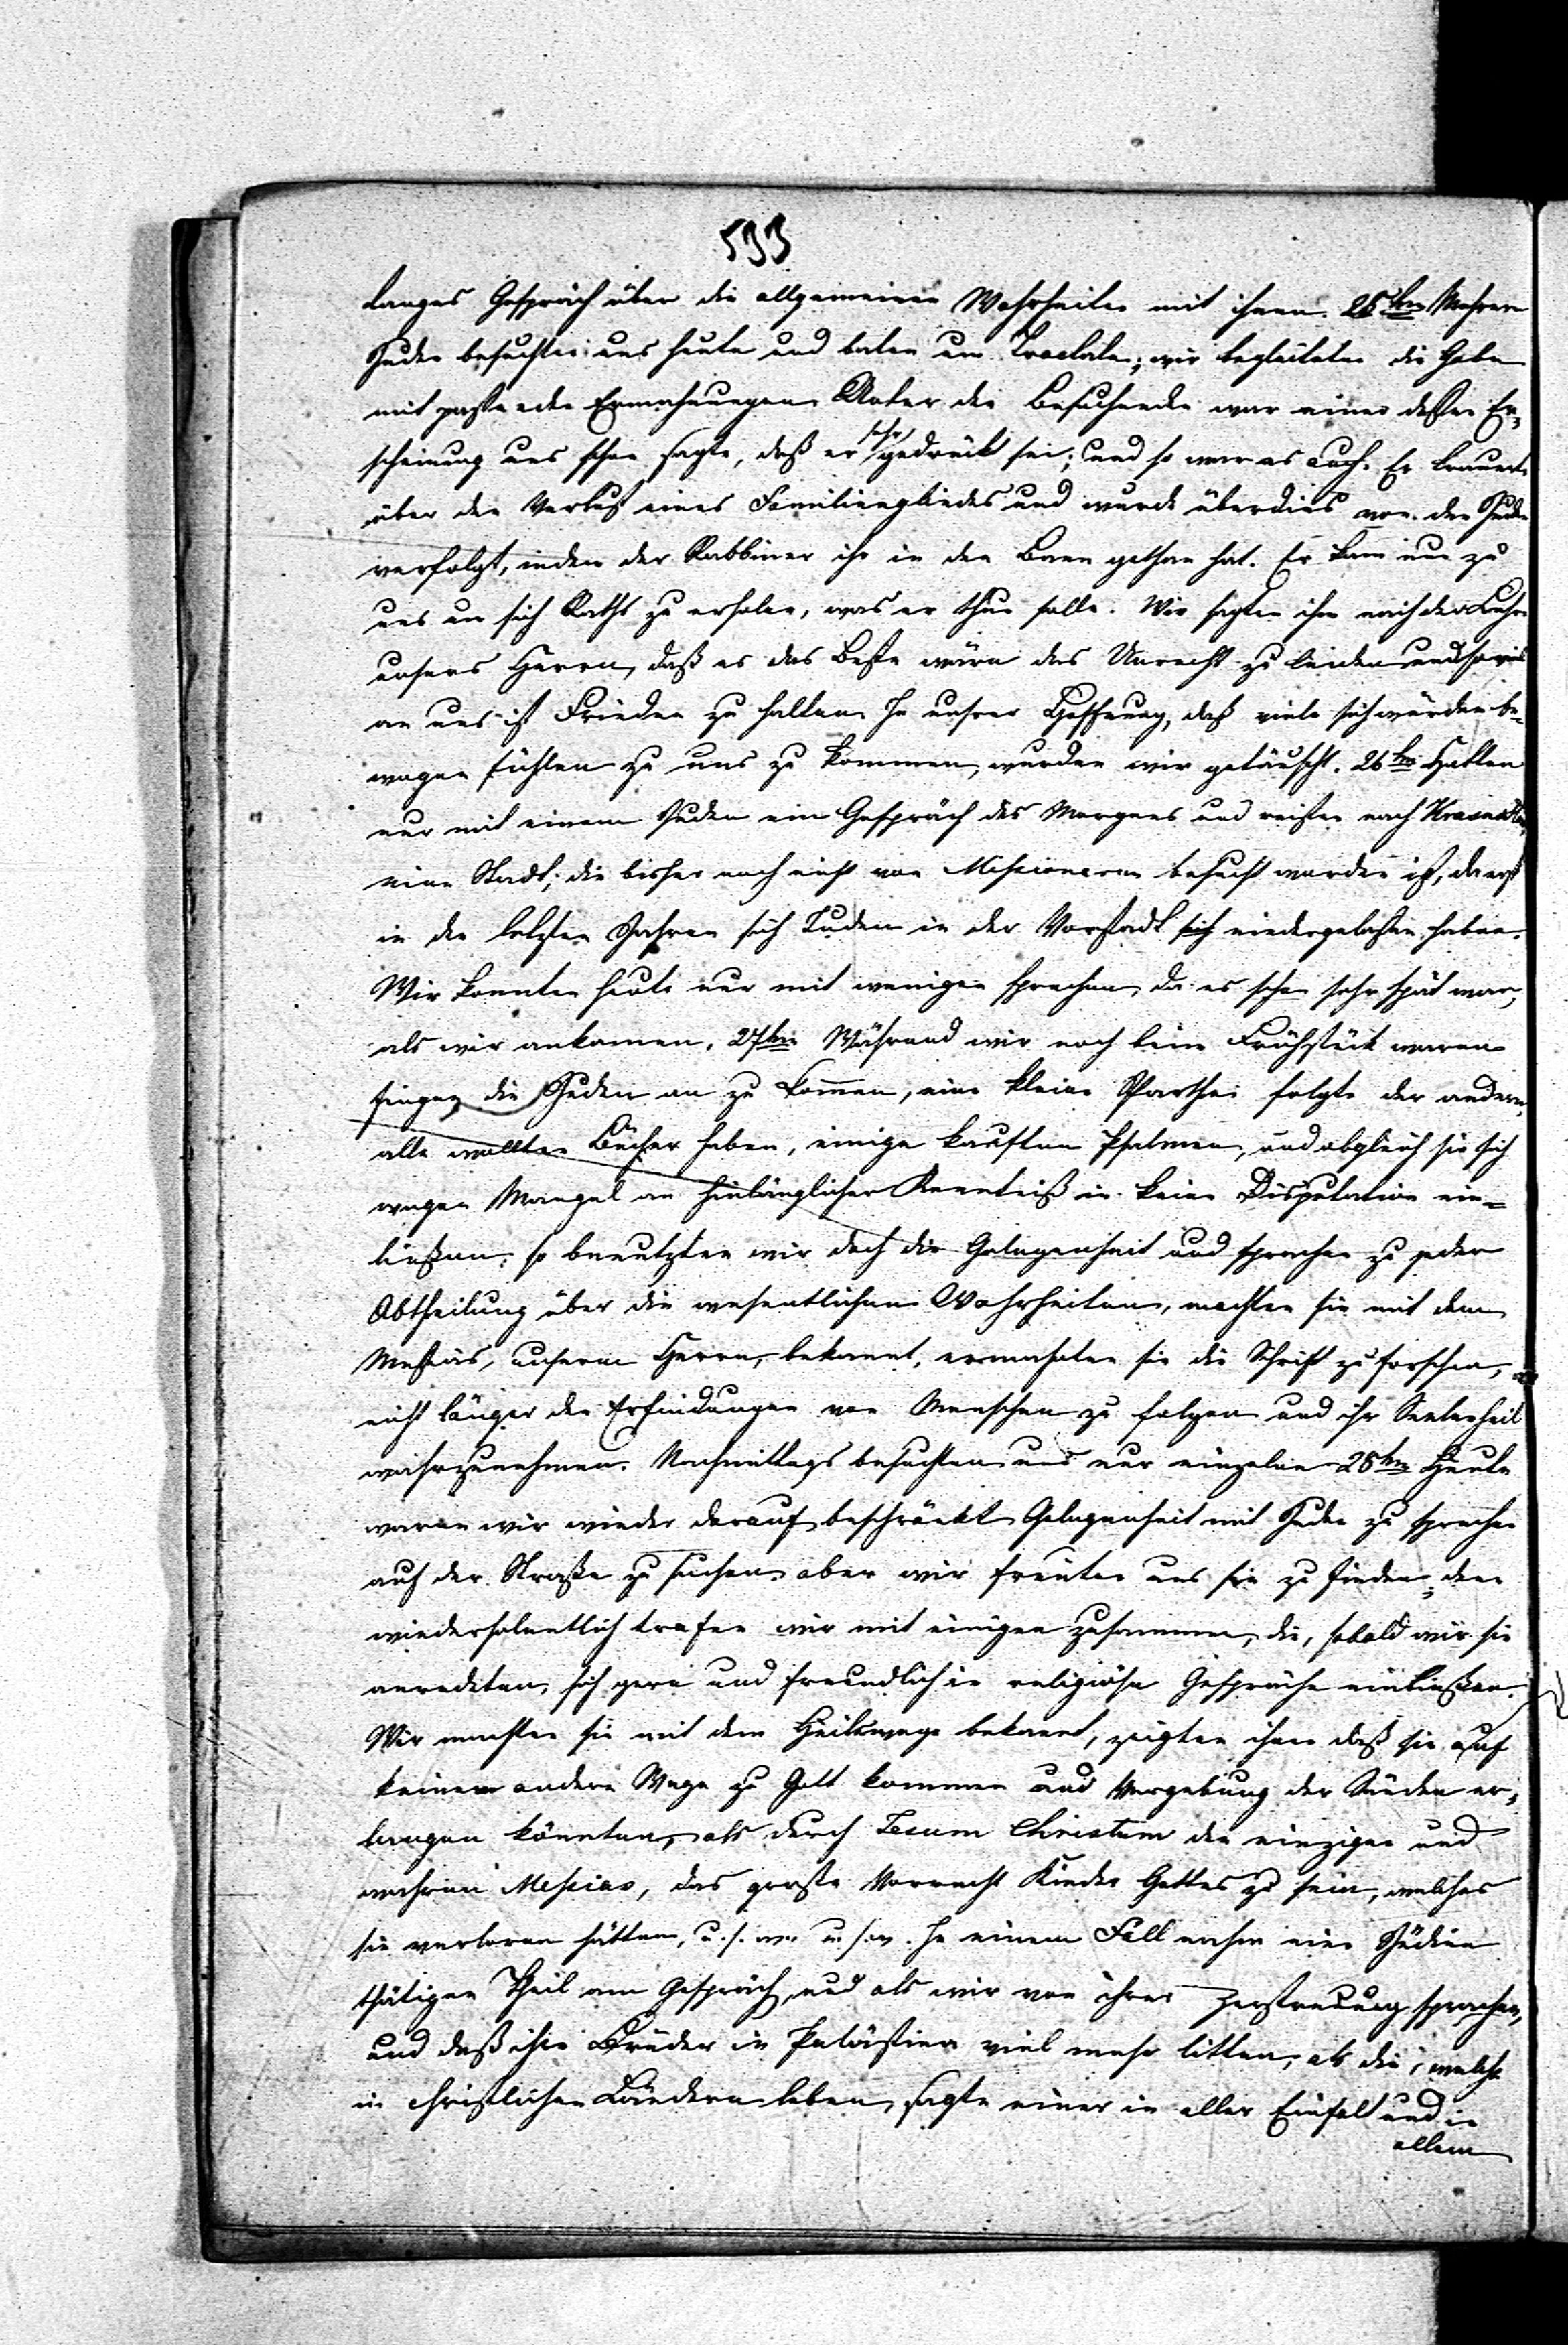 593
langes Gespräch über die allgemeinen Wahrheiten mit ihnen. 25ten Mehrere
Juden besuchten uns heute und baten um Tractate; wir begleiteten die Gabe
mit passenden Ermahnungen. Unter den Besuchenden war einer dessen Er-
scheinung uns schon sagte, daß er sehr gedrückt sei; und so war es auch. Er trauerte
über den Verlust eines Familiengliedes und wurde überdies von den Juden
verfolgt, indem der Rabbiner ihn in den Bann gethan hat. Er kam nun zu
uns um sich Raths zu erholen, was er thun solle. Wir sagten ihm nach der Lehre
unsers Herrn, daß es das Beste wäre das Unrecht zu leiden und soviel
an uns ist Frieden zu halten. In unsrer Hoffnung, daß viele sich würden be-
wogen fühlen zu uns zu kommen, wurden wir getäuscht. 26ten Hatten
nur mit einem Juden ein Gespräch des Morgens und reisten nach
eine Stadt, die bisher noch nicht von Missionaren besucht worden ist, da erst
in den letzten Jahren sich Juden in der Vorstadt sich niedergelassen haben.
Wir konnten heute nur mit wenigen sprechen, da es schon sehr spät war,
als wir ankamen. 27ten Während wir noch beim Frühstück waren
fingen die Juden an zu kom̄en, eine kleine Parthei folgte der andern,
alle wollten Bücher haben, einige kauften Psalmen, und obgleich sie sich
wegen Mangel an hinlänglicher Kenntniß in keine Disputation ein-
ließen, so benutzten wir doch die Gelegenheit und sprachen zu jeder
Abtheilung über die wesentlichen Wahrheiten, machten sie mit dem
Messias, unserm Herrn, bekannt, ermahnten sie die Schrift zu forschen,
nicht länger den Erfindungen von Menschen zu folgen und ihr Seelenheil
wahrzunehmen. Nachmittags besuchten uns nur einzelne. 28ten Heute
waren wir wieder darauf beschränkt Gelegenheit mit Juden zu sprechen
auf der Straße zu suchen, aber wir freuten uns sie zu finden; denn
wiederholentlich trafen wir mit einigen zusammen, die, sobald wir sie
anredeten, sich gern und freundlich in religiöse Gespräche einließen.
Wir machten sie mit dem Heilswege bekannt, zeigten ihnen daß sie auf
keinem andern Wege zu Gott kommen und Vergebung der Sünden er-
langen könnten, als durch Jesum Christum den einzigen und
wahren Messias, das große Vorrecht Kinder Gottes zu sein, welches
sie verloren hätten, u. s. w. u. s. w. In einem Fall nahm eine Jüdin
thätigen Theil am Gespräch, und als wir von ihrer Zerstreuung sprachen,
und daß ihre Brüder in Palästina viel mehr litten, als die, welche
in christlichen Ländern leben, sagte einer in aller Einfalt und in
allem